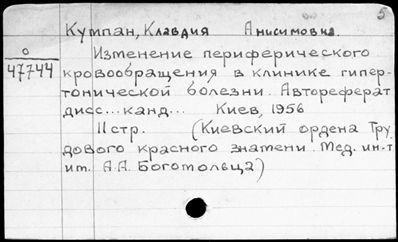 5
Кумпан, Клавдия Анисимовна.
О
47744
Изменение периферического
кровообращения в клинике гипер-
тонической болезни. Автореферат
дисс... канд... Киев, 1956
11стр. (Киевский ордена Тру-
дового красного знамени. Мед. ин-т
им. А.А. Богомольца)